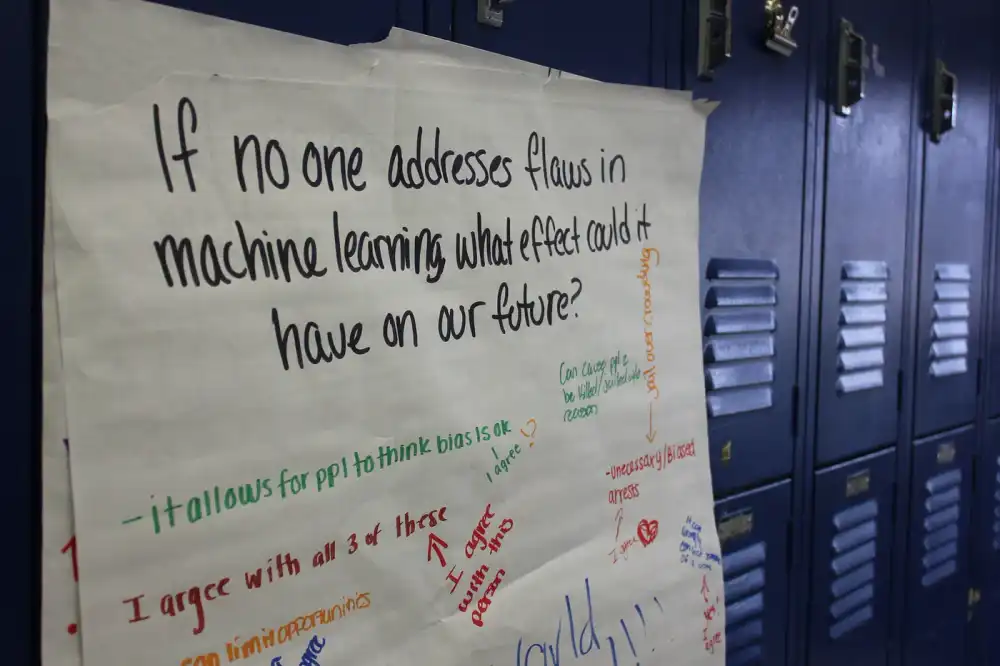 If no one addresses flaws in
machine learning, what effect could it
have on our future?
Jail overcrowding
Can cause ppl 2
be killed/jailed w/o
reason
- it allows for ppl to think bias is ok
I agree
- unnecessary/Biased
arrests
I agree
I argee with all 3 of these
I agree
with this
person
can limit opportunities
agree
World !!!
Yes!
I agree